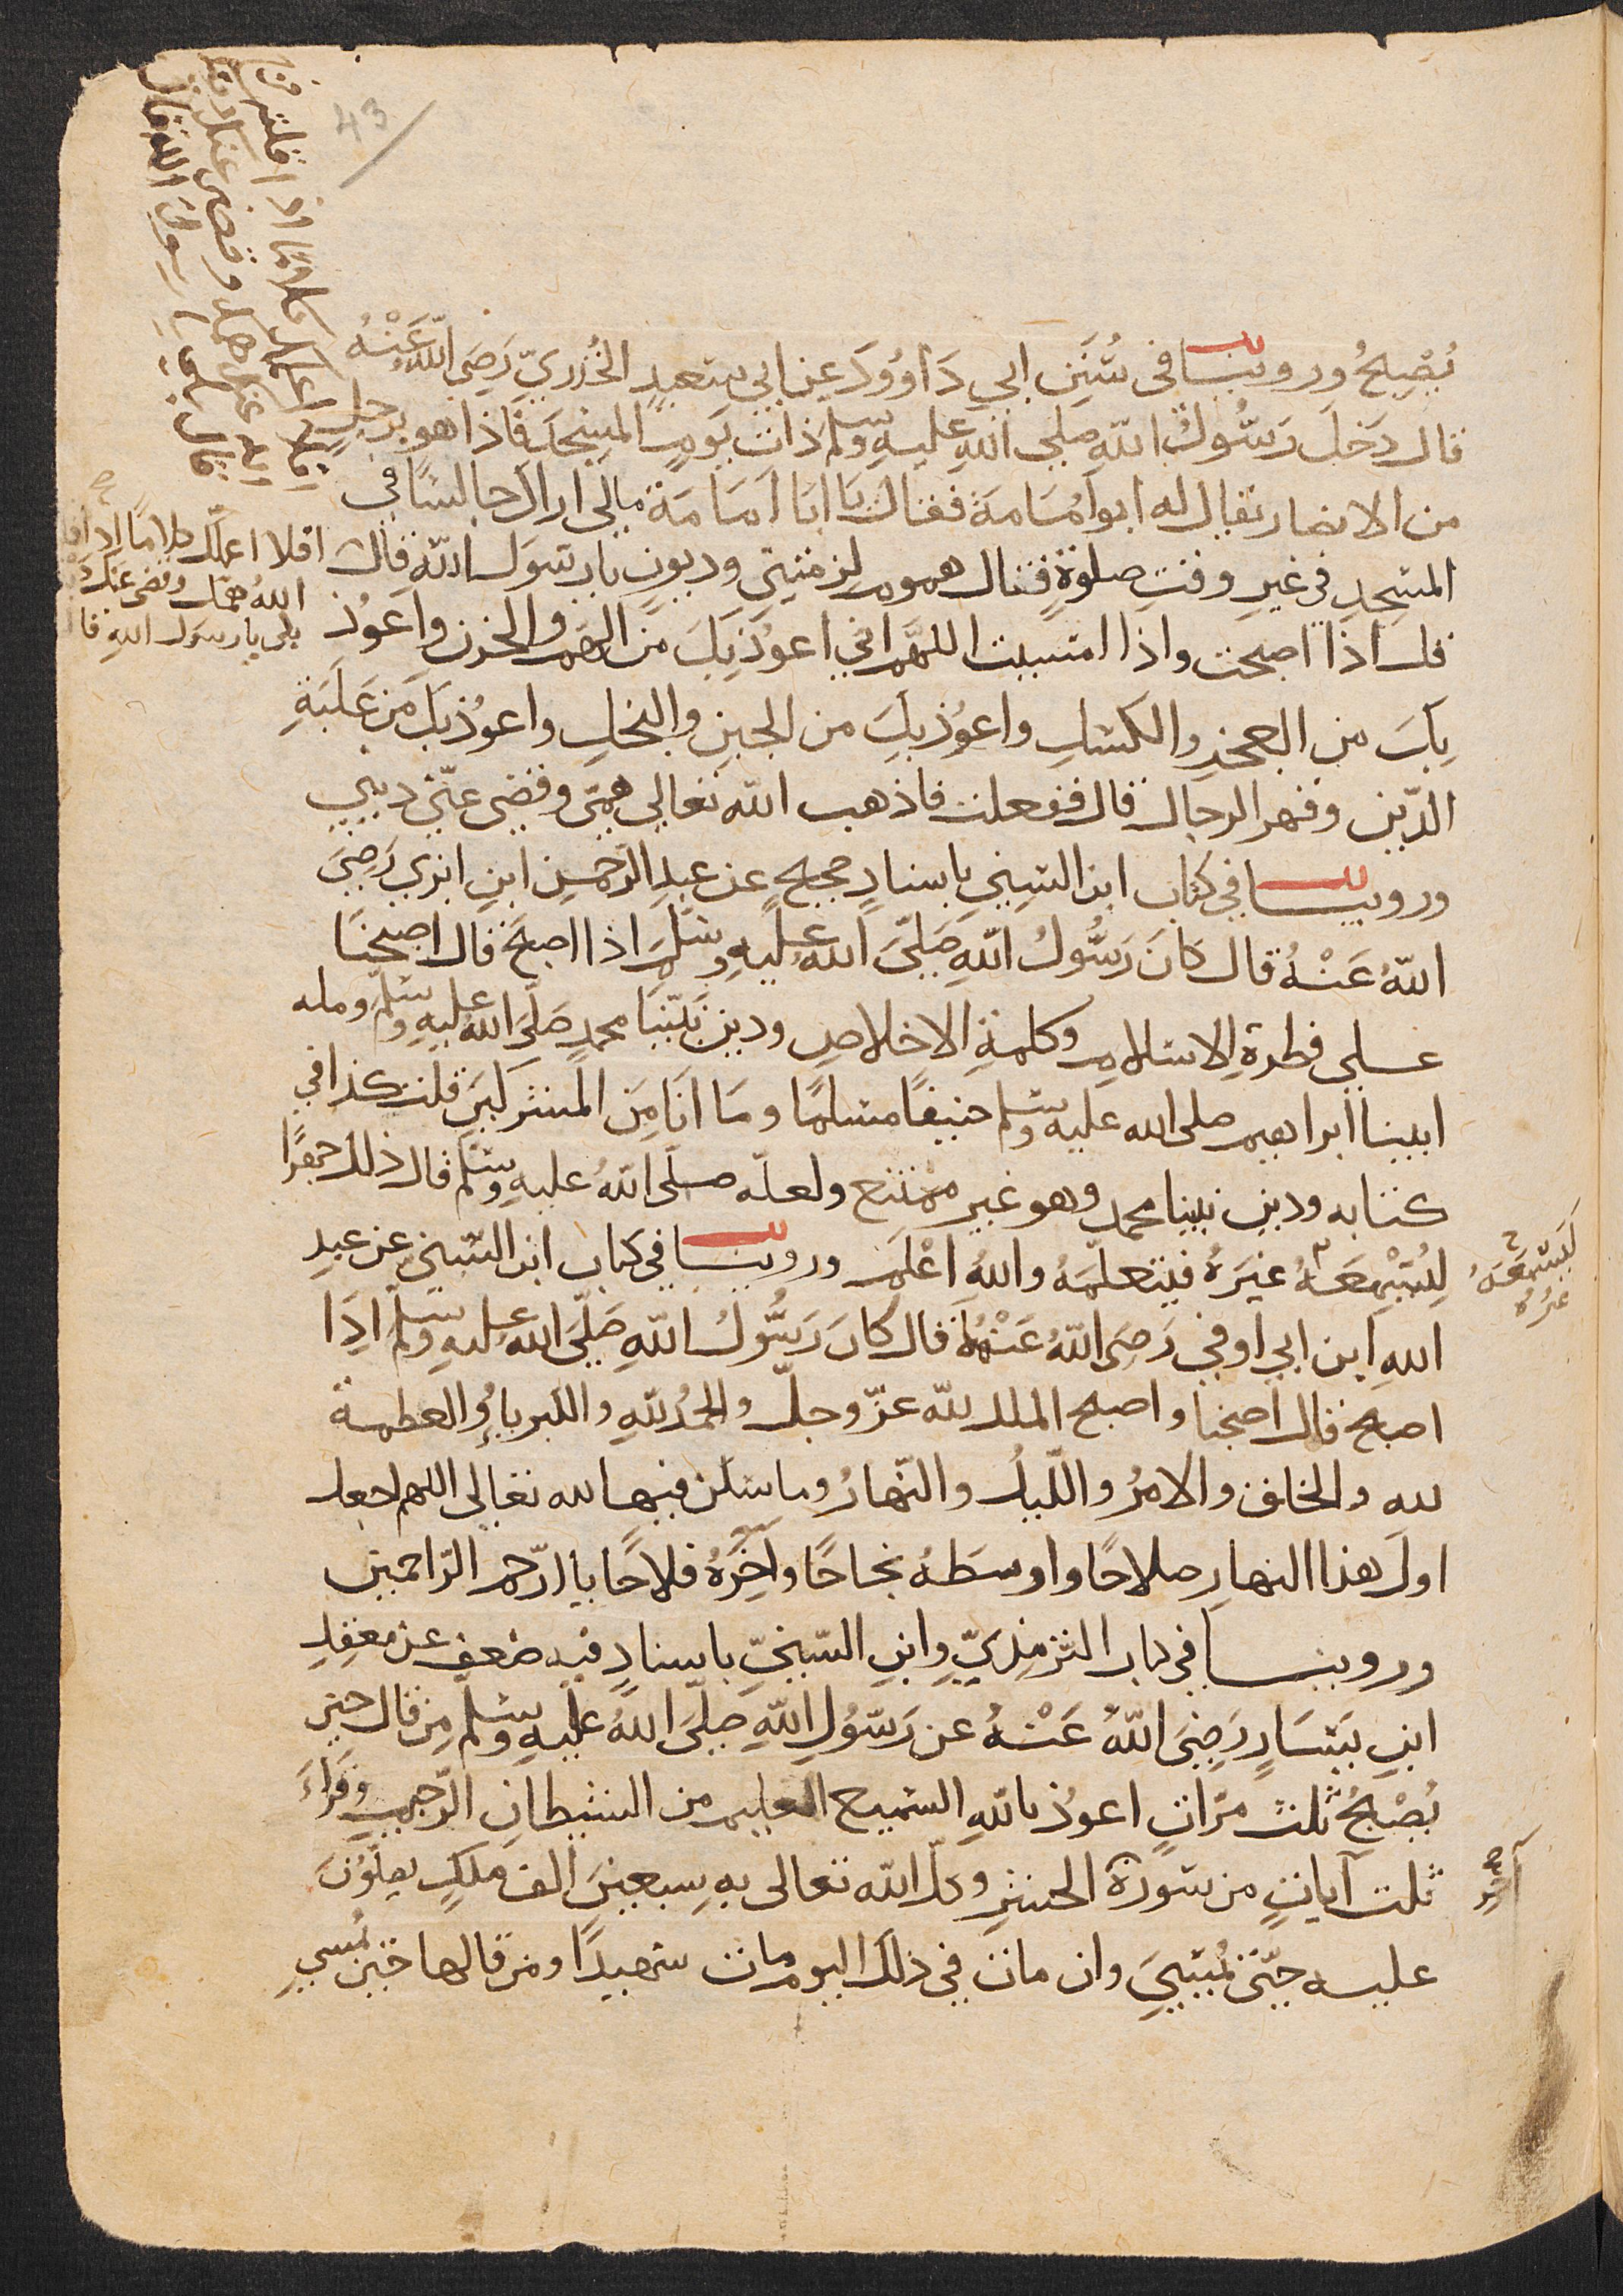 43
يُصْبِحُ وروينا فى سُنَنِ ابي دَاوُودَ عن ابي سعيدٍ الخُدريّ رَضِيَ اللّه عَنْهُ
قال دَخلَ رَسُولُ اللّهِ صلى اللّه عليهِ وسلم ذات يَومٍ المسْجدَ فاذا هو برجلٍ
من الانصار يقال له ابو اُمَامَة فقال يَا ابَا اُمَامَة مالى اراك جالسًا في
المسْجدِ في غيرِ وقتِ صلوةٍ فقال هموم لزمتني وديون يا رسَولَ اللّهِ قال
افلا اعلمك كلامًا اذا قلته
اللّهُ همّك وقضى عنك
بلى يا رسولَ اللهِ قال
قل اذا اصبحت واذا امسيت اللهمّ اني اعوُذ بِكَ من الهَمِّ والحزن واعوُذ
بِكَ من العجزِ والكسَلِ واعوُذ بِكَ من الجبنِ والبخلِ واعوُذ بكَ من غَلَبَةِ
الدّين وقهر الرجال قال ففعلت فاذهب اللّه تعالي همّي وقضى عنّي ديني
وروينا في كتاب ابن السُني باسنادٍ صحيحٍ عن عبدِ الرّحمنِ ابنِ ابزي رَضِيَ
اللّهُ عَنْهُ قال كَانَ رَسُولُ اللّهِ صَلّىَ اللّهُ عليهِ وسَلّمَ اذا اصبحَ قال اصبحنَا
على فطرةِ الاسلامِ وكلمةِ الاخلاصِ ودين نبيّنا محمدٍ صَلّىَ اللهُ عليهِ وسَلّم ومله
ابينا ابراهيم صلى الله عليه وسلم حنيفًا مسلمًا ومَا انَا مِن المشركينَ قلت كذا في
كتابه ودين نبينا محمد وهو غير ممتنع ولعلّه صلّى اللّهُ عليهِ وسَلّم قال ذلك جهرًا
لِيُسْمِعَهُ غيَرهُ فيتعلّمَهُ واللهُ اعْلَم وروينا في كتاب ابن السُني عن عبدِ
ليَسْمَعَهُ
غيرُهُ
اللهِ ابن ابي اوفي رَضِىَ اللّهُ عَنْهُمَا قال كانَ رَسُولُ اللّهِ صَلّىَ اللّهُ عليهِ وسَلّم اذَا
اصبح قال اصبحنا واصبح الملك للّه عزّ وجلّ والحمدُ للّهِ والكبرياءُ والعظمة
لله والخلق والامرُ واللّيلُ والنّهارُ وما سَكن فيهما لله تعالى اللهم اجعل
اولَ هذا النهارِ صلاحًا واوسَطهُ نجاحًا وآخِرَهُ فلاحًا يا ارحم الرّاحمين
وروينا في كتاب الترمذيّ وابنِ السّنيّ باسنادٍ فيه ضعف عن معقِلِ
ابنِ يَسَارٍ رَضِيَ اللّهُ عَنْهُ عن رَسُولِ اللّهِ صَلّىَ اللّهُ عليهِ وسلّم مِن قال حين
يُصْبحُ ثلث مرّاتٍ اعوُذ باللّهِ السّميع العليم من الشيطانِ الرّجيمِ وَقَرَاءَ
ثلت آياتٍ من سوُرَة الحشرِ وكّلَ اللّه تعالى بهِ سبعينَ الف ملَكٍ يصلّوُنَ
آخر
عليه حتّى يُمسيَ وان ماتَ في ذلكَ اليوم مات شهيدًا ومن قالها حين يُمسي